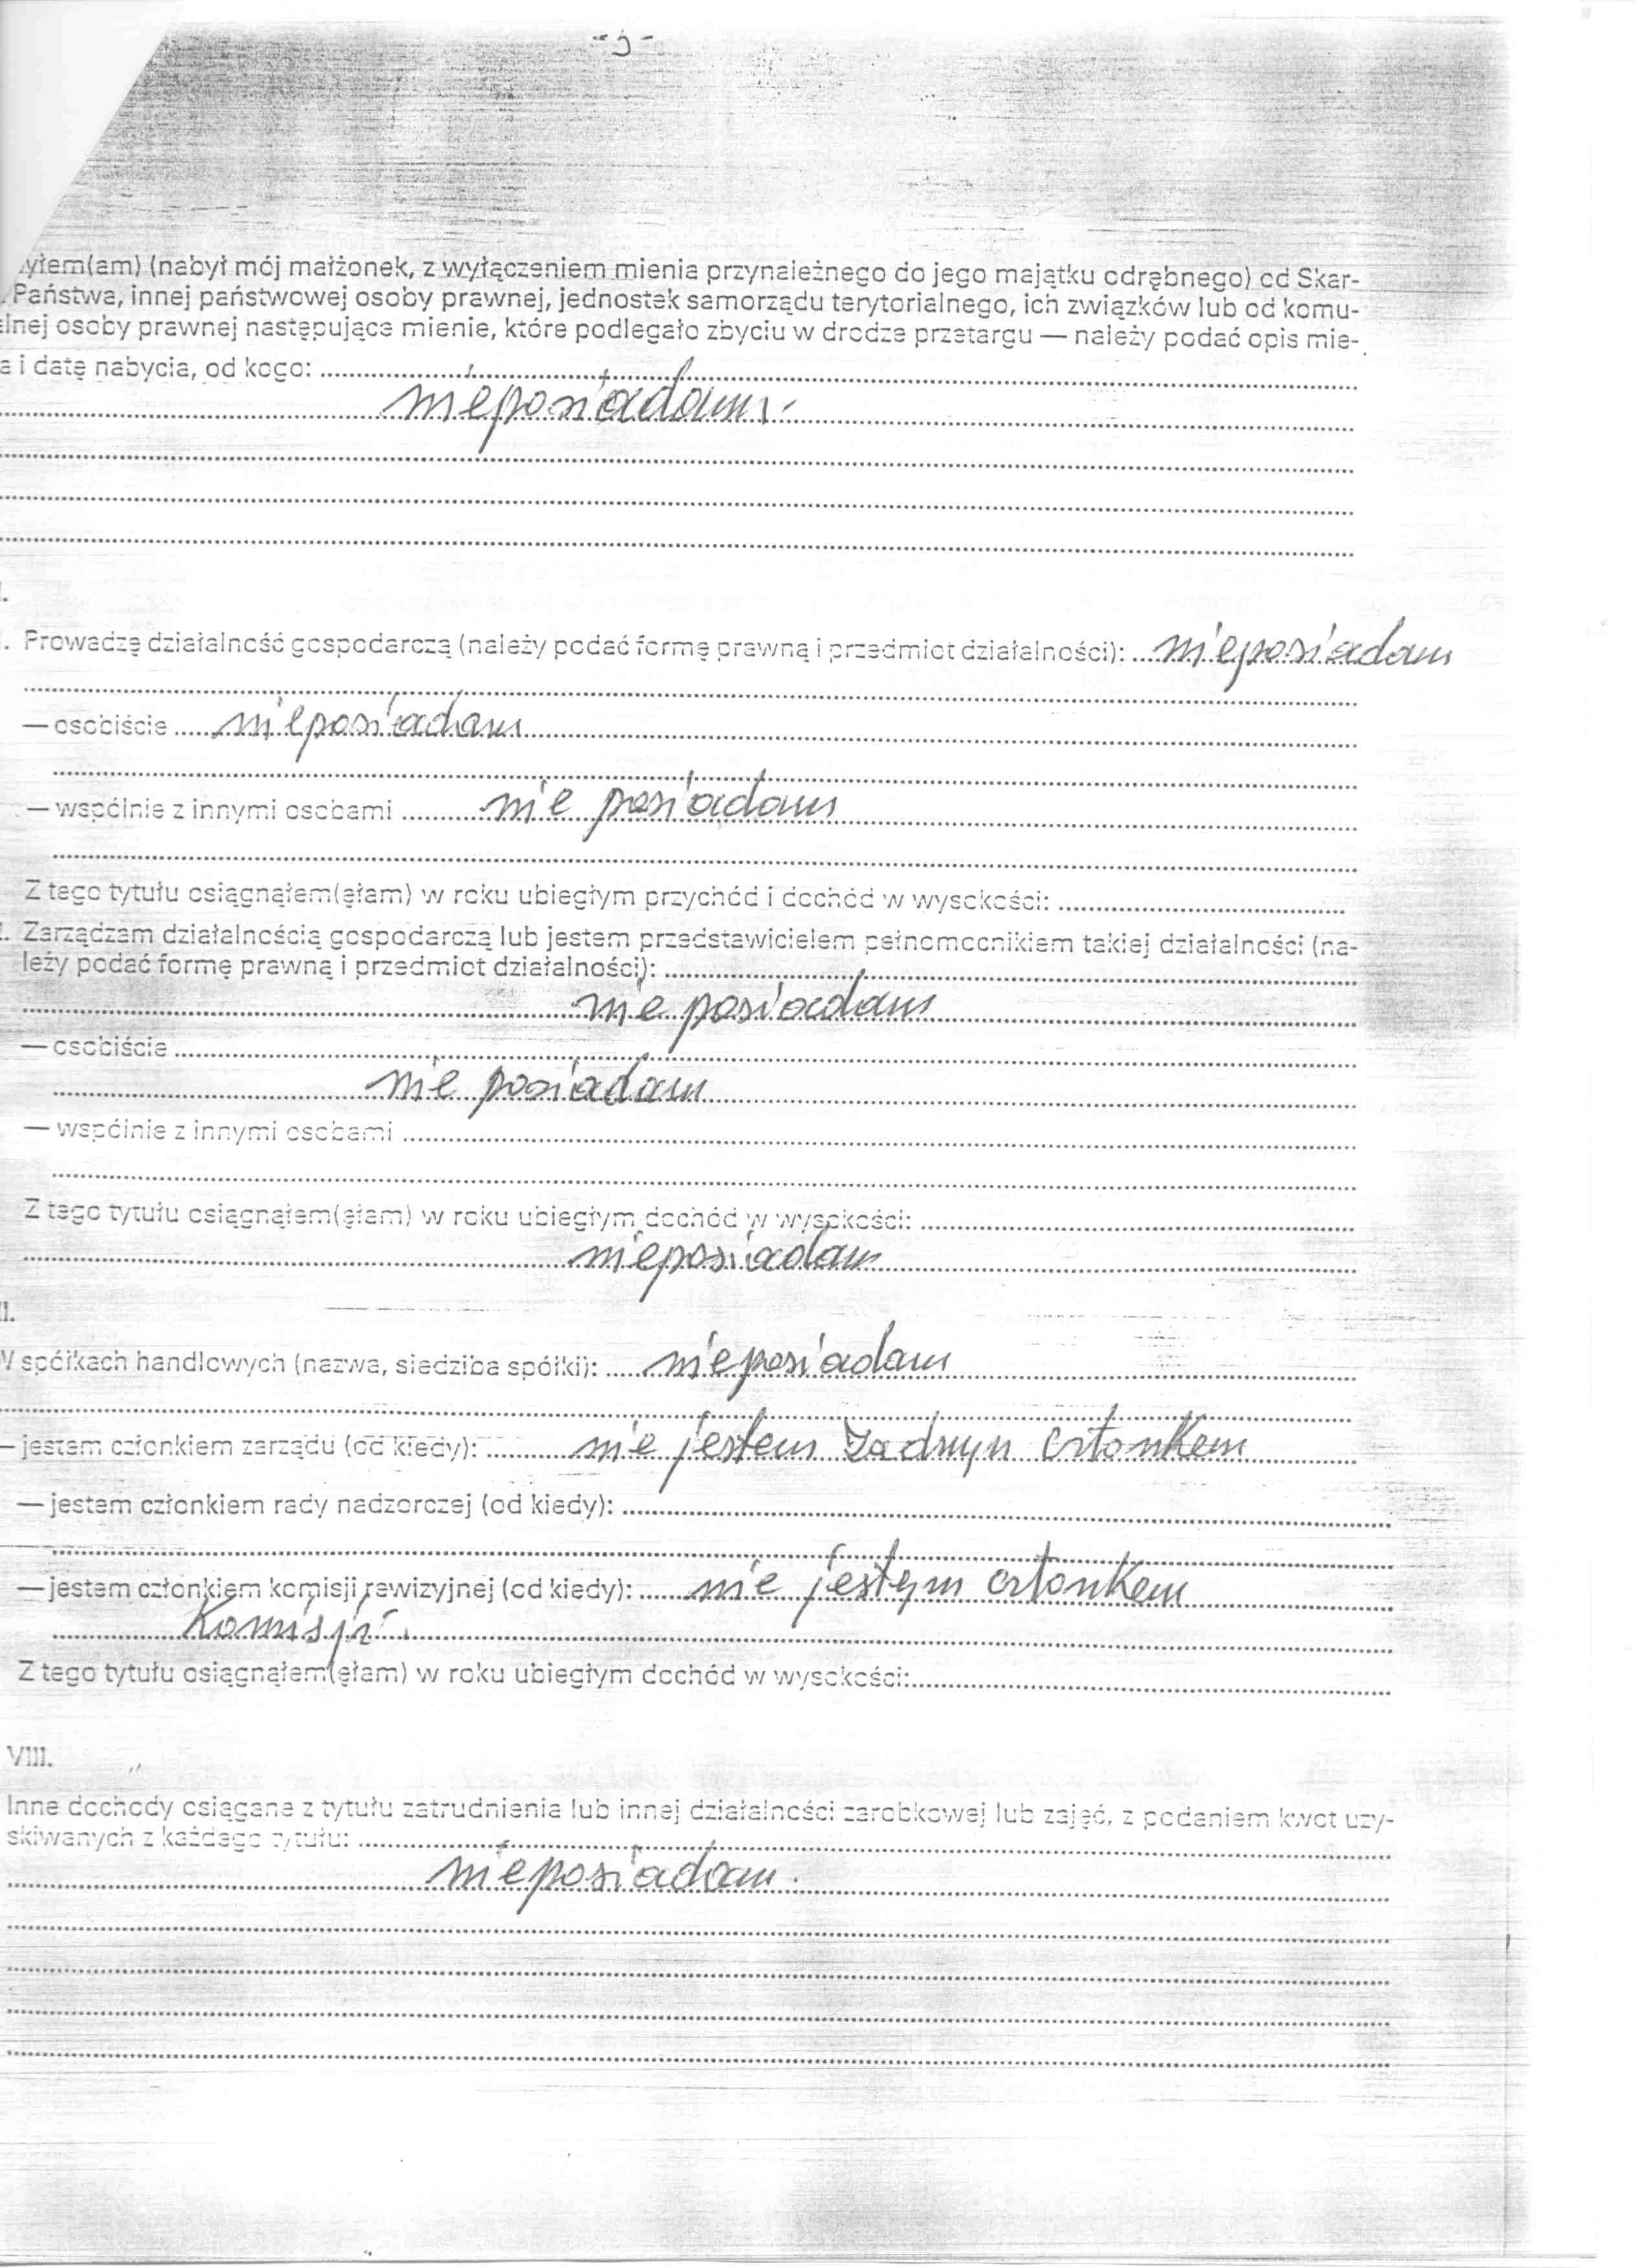 - 3 -
yłem(am) (nabył mój małżonek, z wyłączeniem mienia przynależnego do jego majątku odrębnego) od Skar-
Państwa, innej państwowej osoby prawnej, jednostek samorządu terytorialnego, ich związków lub od komu-
lnej osoby prawnej następujące mienie, które podlegało zbyciu w drodze przetargu — należy podać opis mie-
a i datę nabycia, od kogo:
nieposiadam.
. Prowadzę działalność gospodarczą (należy podać formę prawną i przedmiot działalności): nieposiadam
— osobiście nieposiadam
— wspólnie z innymi osobami nie posiadam
Z tego tytułu osiągnąłem(ęłam) w roku ubiegłym przychód i dochód w wysokości:
. Zarządzam działalnością gospodarczą lub jestem przedstawicielem pełnomocnikiem takiej działalności (na-
leży podać formę prawną i przedmiot działalności):
nie posiadam
— osobiście
nie posiadam
— wspólnie z innymi osobami
Z tego tytułu osiągnąłem(ęłam) w roku ubiegłym dochód w wysokości:
nieposiadam
I.
W spółkach handlowych (nazwa, siedziba spółki): nieposiadam
— jestem członkiem zarządu (od kiedy): nie jestem żadnyn członkem
— jestem członkiem rady nadzorczej (od kiedy):
— jestem członkiem komisji rewizyjnej (od kiedy): nie jestem członkem
Komisji.
Z tego tytułu osiągnąłem(ęłam) w roku ubiegłym dochód w wysokości:
VIII.
Inne dochody osiągane z tytułu zatrudnienia lub innej działalności zarobkowej lub zajęć, z podaniem kwot uzy-
skiwanych z każdego tytułu:
nieposiadam.